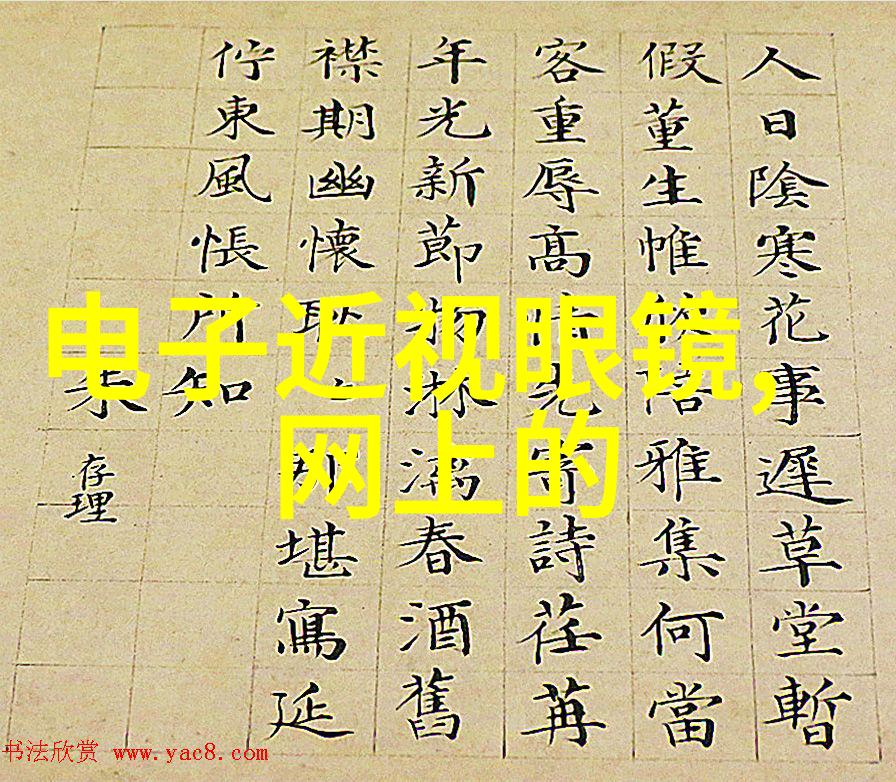 人日陰寒花事遲草堂暫
假董生帷雅集何當
客重辱高先寄詩荏苒
年光新節物淋漓春酒舊
襟期幽懷耿堪寫延
佇東風悵所知
朱
存理
电子近视眼镜,
网上的
书法欣赏 www.yac8.com